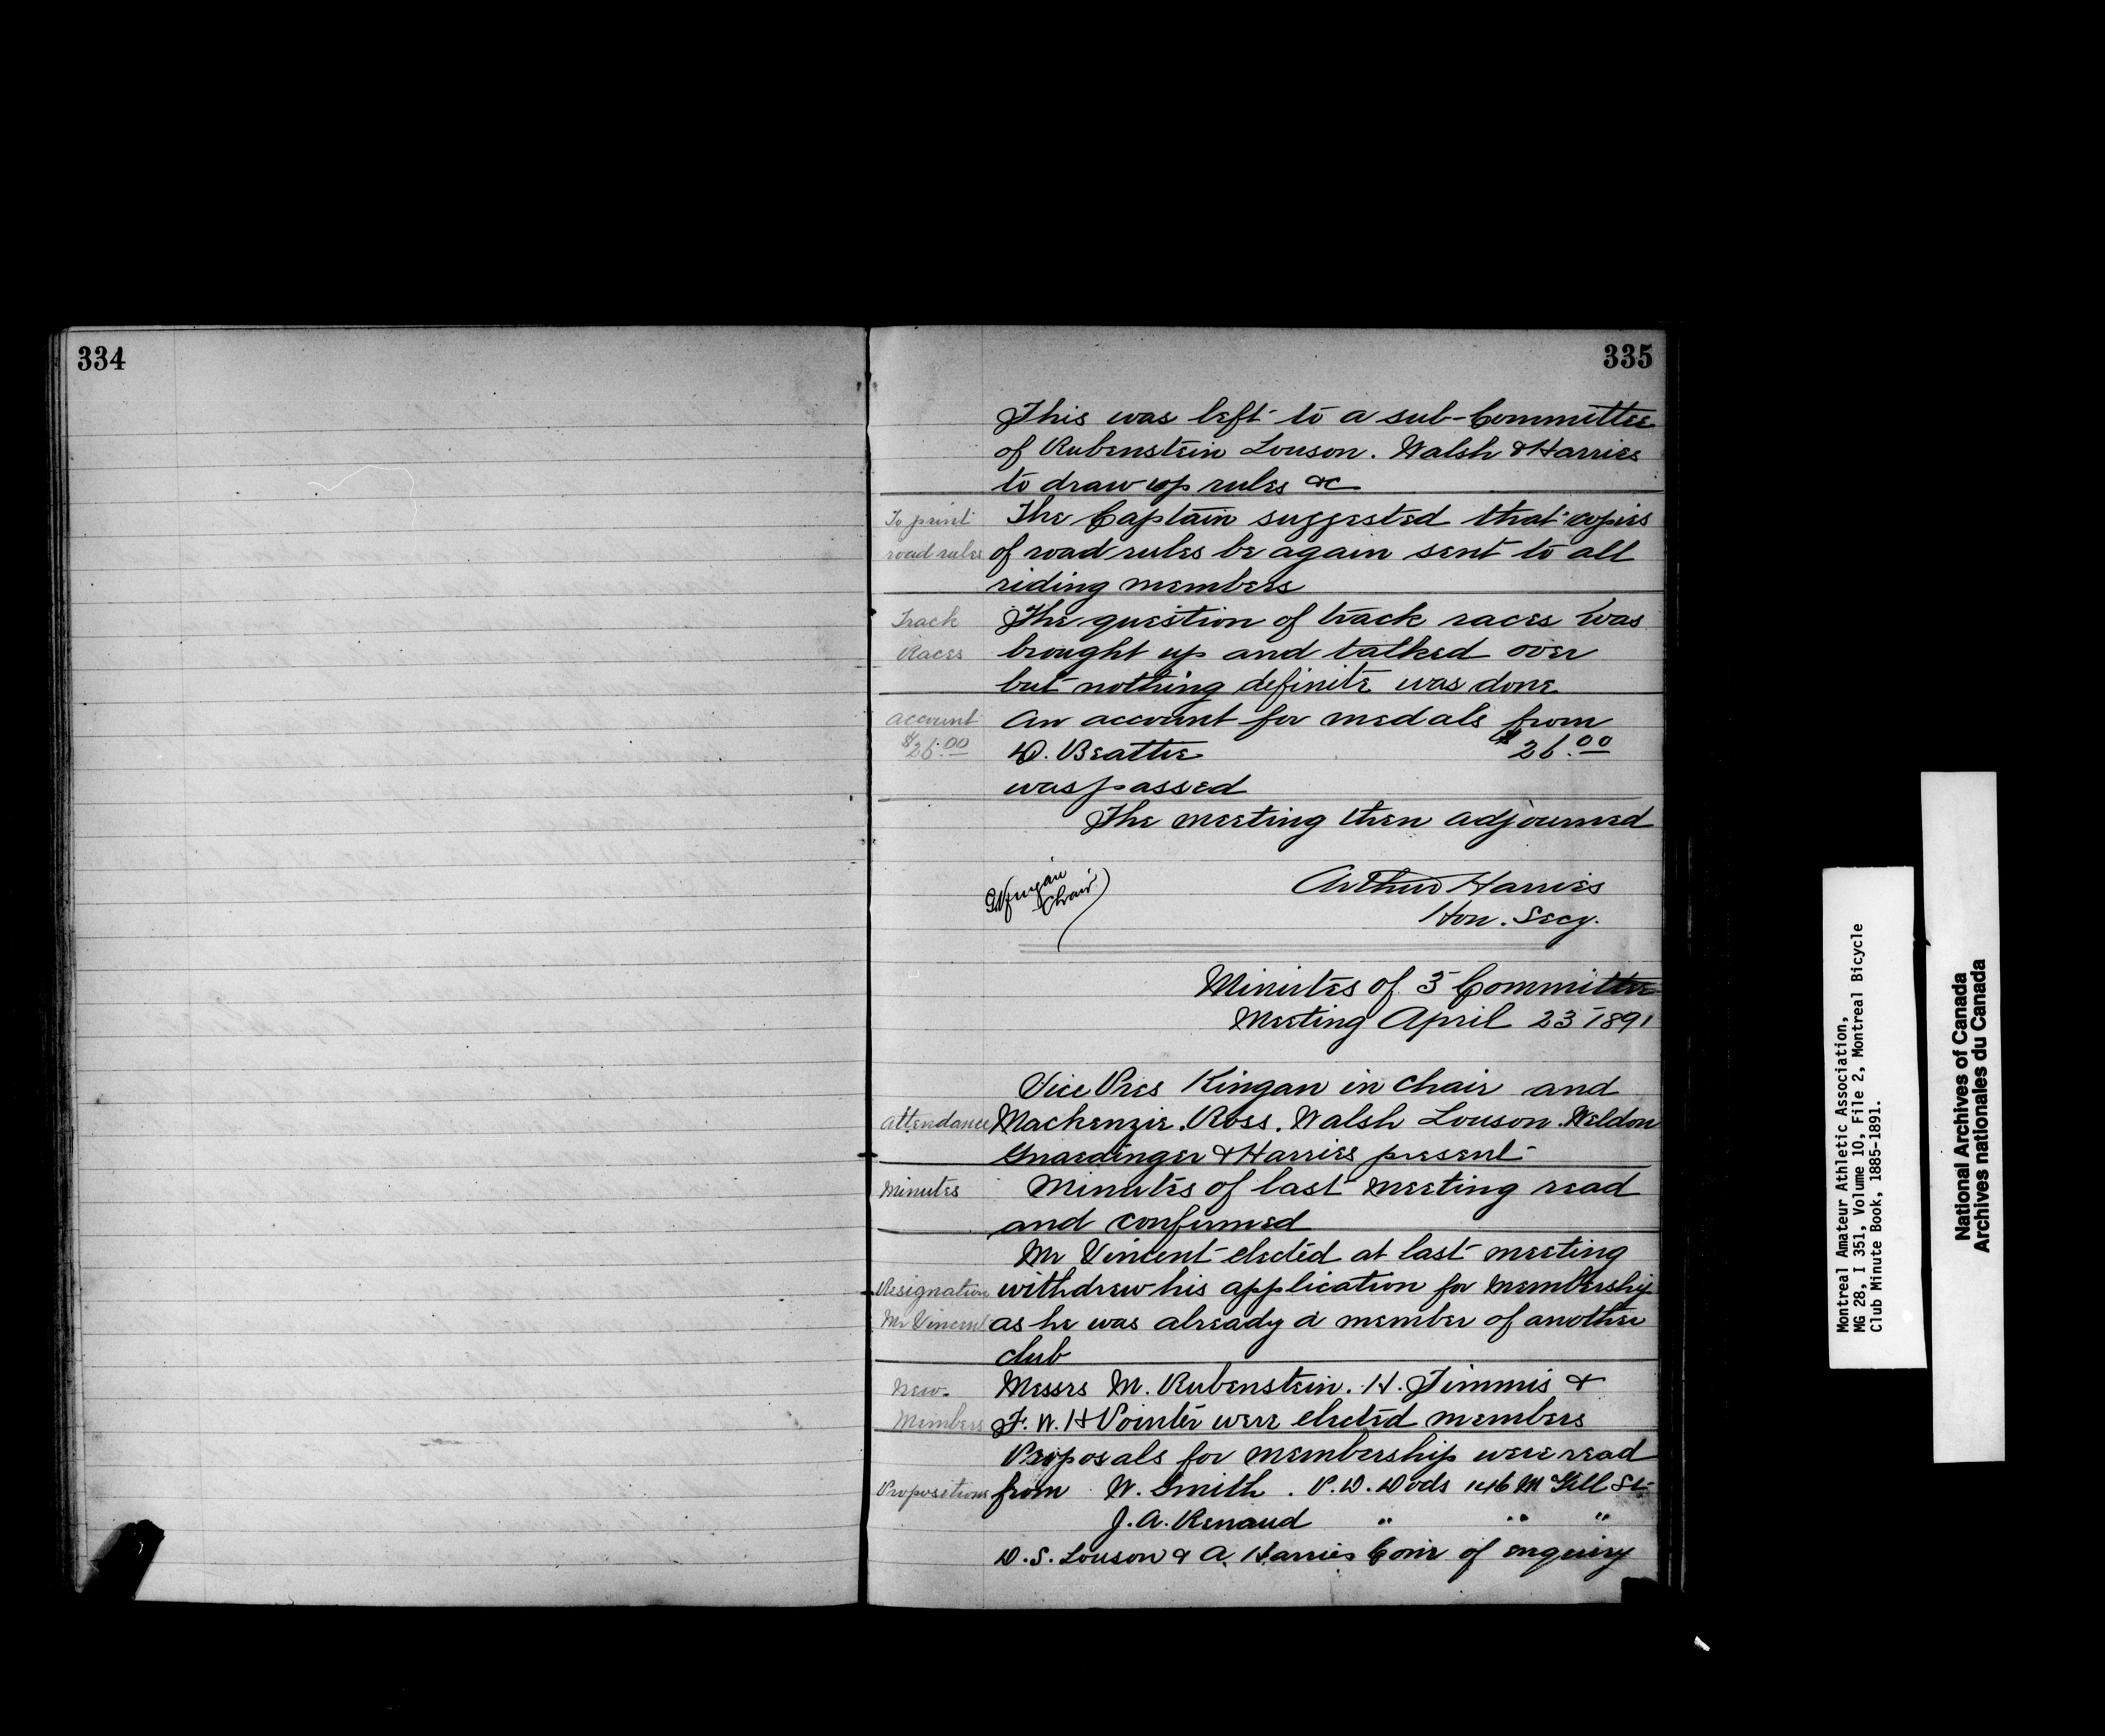 334
335
This was left to a sub-Committee
of Rubenstein Louson. Walsh & Harries
to draw up rules &c
To print
road rules
The Captain suggested that copies
of road rules be again sent to all
riding members
Track
Races
The question of track races was
brought up and talked over
but nothing definite was done
Account
$26.00
An account for medals from
D. Beattie $26.00
was passed
The meeting then adjourned
Kingan
Chair
Arthur Harries
Hon. Secy.
Minutes of 5 Committee
Meeting April 23 1891
Vice Pres Kingan in chair and
Attendance
Mackenzie. Ross. Walsh Louson. Weldon
Gnaedinger & Harries present
Minutes
Minutes of last meeting read
and confirmed
Mr Vincent elected at last meeting
Resignation
withdrew his application for membership
Mr Vincent
as he was already a member of another
club
New
Members
Messrs M. Rubenstein. H. Timmis &
F. W. H Pointer were elected members
Proposals for membership were read
Propositions
from W. Smith. P. D. Dods 146 McGill St
J. A. Renaud " " "
D. S. Louson & A. Harries Com of enquiry
Montreal Amateur Athletic Association,
MG 28, I 351, Volume 10, File 2, Montreal Bicycle
Club Minute Book, 1885-1891.
National Archives of Canada
Archives nationales du Canada